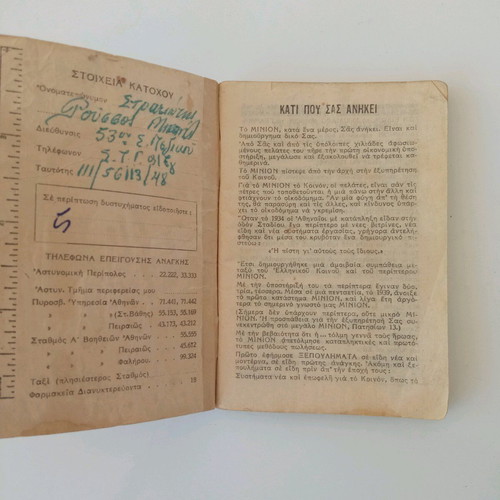 ΣΤΟΙΧΕΙΑ ΚΑΤΟΧΟΥ
Ὀνοματεπώνυμον
Διεύθυνσις 53ον
Τηλέφωνον Σ.Τ.Γ. 912γ
Ταυτότης 111/56113/48
Σὲ περίπτωση δυστυχήματος εἰδοποιῆστε :
ΤΗΛΕΦΩΝΑ ΕΠΕΙΓΟΥΣΗΣ ΑΝΑΓΚΗΣ
Ἀστυνομικὴ Περίπολος . . 22,222, 33,333
Ἀστυν. Τμῆμα περιφερείας μου
Πυροσβ. Ὑπηρεσία Ἀθηνῶν . 71.441, 71.442
» » (Στ.Βάθης) 55.153, 55.169
» » Πειραιῶς 43.173, 43.213
Σταθμὸς Α' Βοηθειῶν Ἀθηνῶν . . . 55.555
» » Πειραιῶς . . . 45.672
» » Φαλήρου . . . 99.324
Ταξὶ (πλησιέστερος Σταθμός) . . . 18
Φαρμακεῖα Διανυκτερεύοντα
ΚΑΤΙ ΠΟΥ ΣΑΣ ΑΝΗΚΕΙ
Τὸ ΜΙΝΙΟΝ, κατὰ ἕνα μέρος, Σᾶς ἀνήκει. Εἶναι καὶ
δημιούργημα δικό Σας.
Ἀπὸ Σᾶς καὶ ἀπὸ τὶς ὑπόλοιπες χιλιάδες ἀφωσιω-
μένους πελάτες του πῆρε τὴν πρώτη οἰκονομικὴ ὑπο-
στήριξη, μεγάλωσε καὶ ἐξακολουθεῖ νὰ τρέφεται κα-
θημερινά.
Τὸ ΜΙΝΙΟΝ πίστεψε ἀπὸ τὴν ἀρχὴ στὴν ἐξυπηρέτηση
τοῦ Κοινοῦ.
Γιὰ τὸ ΜΙΝΙΟΝ τὸ Κοινόν, οἱ πελάτες, εἶναι σὰν τὶς
πέτρες ποὺ τοποθετοῦνται ἡ μιὰ πάνω στὴν ἄλλη καὶ
φτιάχνουν τὸ οἰκοδόμημα. Ἂν μία φύγη ἀπ' τὴ θέση
της, θὰ παρασύρη καὶ τὶς ἄλλες, καὶ κίνδυνος ὑπάρ-
χει τὸ οἰκοδόμημα νὰ γκρεμίση.
Ὅταν τὸ 1934 οἱ Ἀθηναῖοι μὲ κατάπληξη εἶδαν στὴν
ὁδὸν Σταδίου, ἕνα περίπτερο μὲ νέες βιτρίνες, νέα
εἴδη καὶ νέα συστήματα ἐργασίας, γρήγορα ἀντελή-
φθησαν ὅτι μέσα του κρυβόταν ἕνα δημιουργικὸ πι-
στεύω :
«Ἡ πίστη γι' αὐτοὺς τοὺς ἴδιους».
Ἔτσι δημιουργήθηκε μιὰ ἀμοιβαία συμπάθεια με-
ταξὺ τοῦ Ἑλληνικοῦ Κοινοῦ καὶ τοῦ περίπτερου
ΜΙΝΙΟΝ.
Μὲ τὴν ὑποστήριξή του τὰ περίπτερα ἔγιναν δύο,
τρία, τέσσερα. Μέσα σὲ μιὰ πενταετία, τὸ 1939, ἄνοιξε
τὸ πρῶτο κατάστημα ΜΙΝΙΟΝ, καὶ λίγα ἔτη ἀργό-
τερα τὸ σημερινὸ γνωστό μας ΜΙΝΙΟΝ.
(Σήμερα δὲν ὑπάρχουν περίπτερα, οὔτε μικρὸ ΜΙ-
ΝΙΟΝ. Ἡ προσπάθεια γιὰ τὴν ἐξυπηρέτησή Σας συ-
νεκεντρώθη στὸ μεγάλο ΜΙΝΙΟΝ, Πατησίων 13.)
Μὲ τὴν βεβαιότητα ὅτι ἡ τόλμη γεννᾶ τοὺς ἥρωας,
τὸ ΜΙΝΙΟΝ ἐφήρμοσε καταπληκτικὲς καὶ πρωτό-
τυπες μεθόδους πωλήσεως.
Πρῶτο ἐφήρμοσε ΞΕΠΟΥΛΗΜΑΤΑ σὲ εἴδη νέα καὶ
μοντέρνα, σὲ εἴδη πρώτης ἀνάγκης. Ἀκόμη καὶ ξε-
πουλήματα σὲ εἴδη πρὶν ἀπ' τὴν ἐποχή τους.
Συστήματα νέα καὶ ἐπωφελῆ γιὰ τὸ Κοινόν, ὅπως τὸ